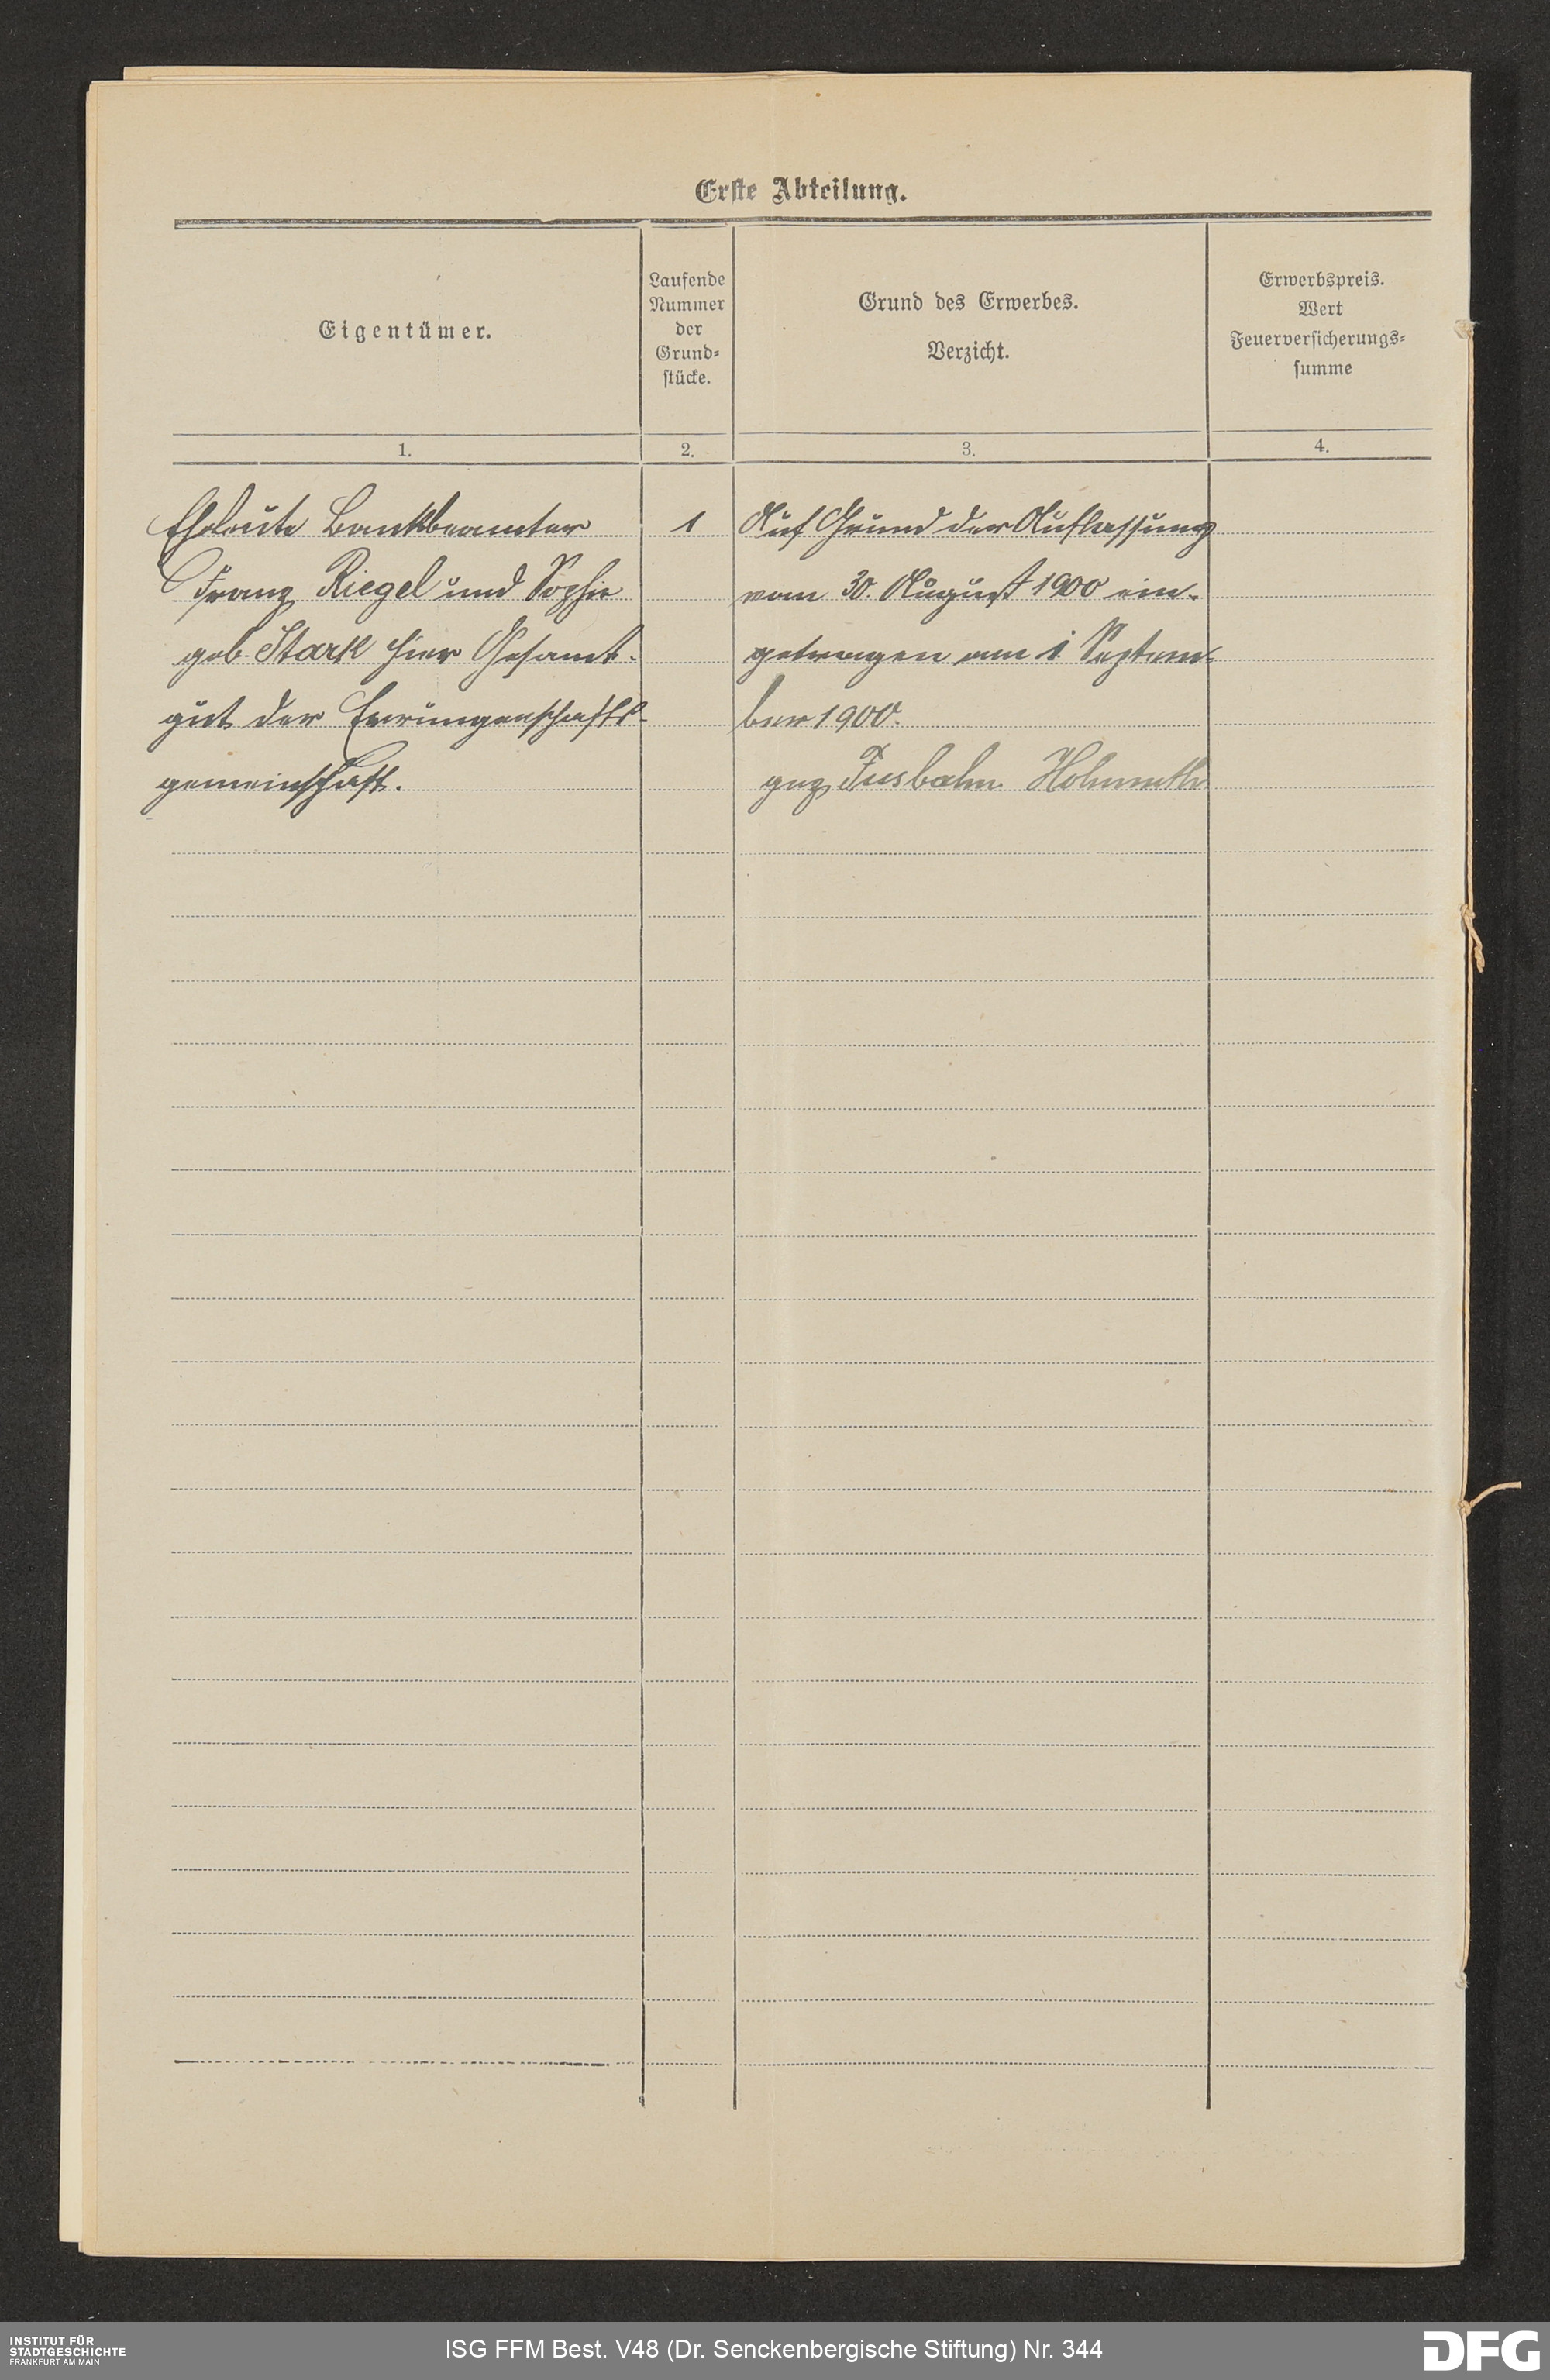 Erste Abteilung.
Eigentümer.
Laufende
Nummer
der
Grund-
stücke.
Grund des Erwerbes.
Verzicht.
Erwerbspreis.
Wert
Feuerversicherungs-
summe
1.
2.
3.
4.
Eheleute Bankbeamter
Franz Riegel und Sophie
geb. Stark hier Gesamt-
gut der Errungenschafts-
gemeinschaft.
1
Auf Grund der Auflassung
vom 30. August 1900 ein-
getragen am 1. Septem-
ber 1900.
gez. Fusbahn
INSTITUT FÜR
STADTGESCHICHTE
FRANKFURT AM MAIN
ISG FFM Best. V48 (Dr. Senckenbergische Stiftung) Nr. 344
DFG